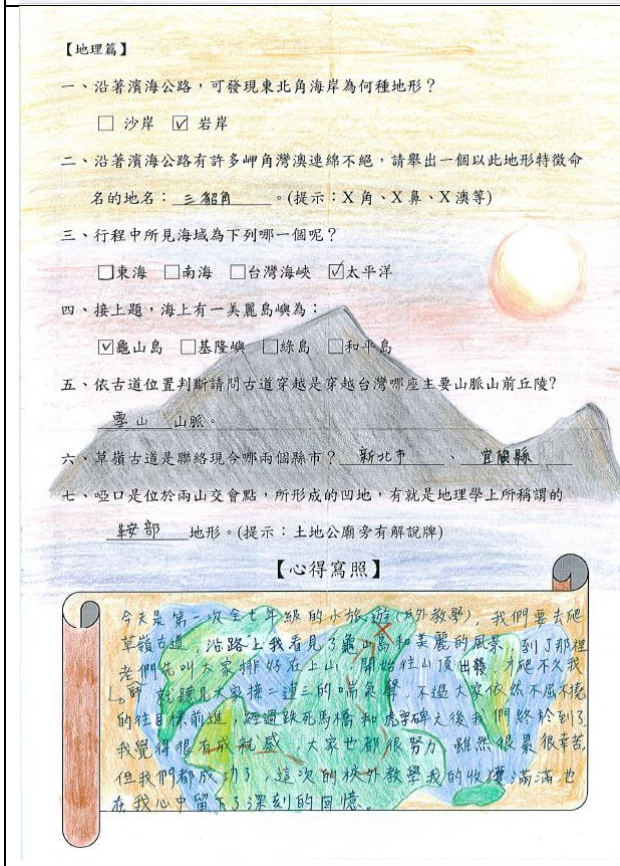 【地理篇】
一、沿著濱海公路，可發現東北角海岸為何種地形？
□ 沙岸 ☑ 岩岸
二、沿著濱海公路有許多岬角灣澳連綿不絕，請舉出一個以此地形特徵命
名的地名：三貂角。(提示：X 角、X 鼻、X 澳等)
三、行程中所見海域為下列哪一個呢？
□東海 □南海 □台灣海峽 ☑太平洋
四、接上題，海上有一美麗島嶼為：
☑龜山島 □基隆嶼 □綠島 □和平島
五、依古道位置判斷請問古道穿越是穿越台灣哪座主要山脈山前丘陵?
雪山 山脈。
六、草嶺古道是聯絡現今哪兩個縣市？ 新北市 、 宜蘭縣
七、啞口是位於兩山交會點，所形成的凹地，有就是地理學上所稱謂的
鞍部 地形。(提示：土地公廟旁有解說牌)
【心得寫照】
今天是第一次全七年級的小旅遊(戶外教學)，我們要去爬
草嶺古道，沿路上我看見了龜山島和美麗的風景，到了那裡
老們先叫大家排好在上山，開始往山頂出發，才爬不久我
師 就聽見大家接二連三的喘氣聲，不過大家依然不屈不撓
的往目標前進，經過跌死馬橋和虎字碑之後我們終於到了
我覺得很有成就感，大家也都很努力 雖然很累很辛苦
但我們都成功了，這次的校外教學我的收穫滿滿也
在我心中留下了深刻的回憶。